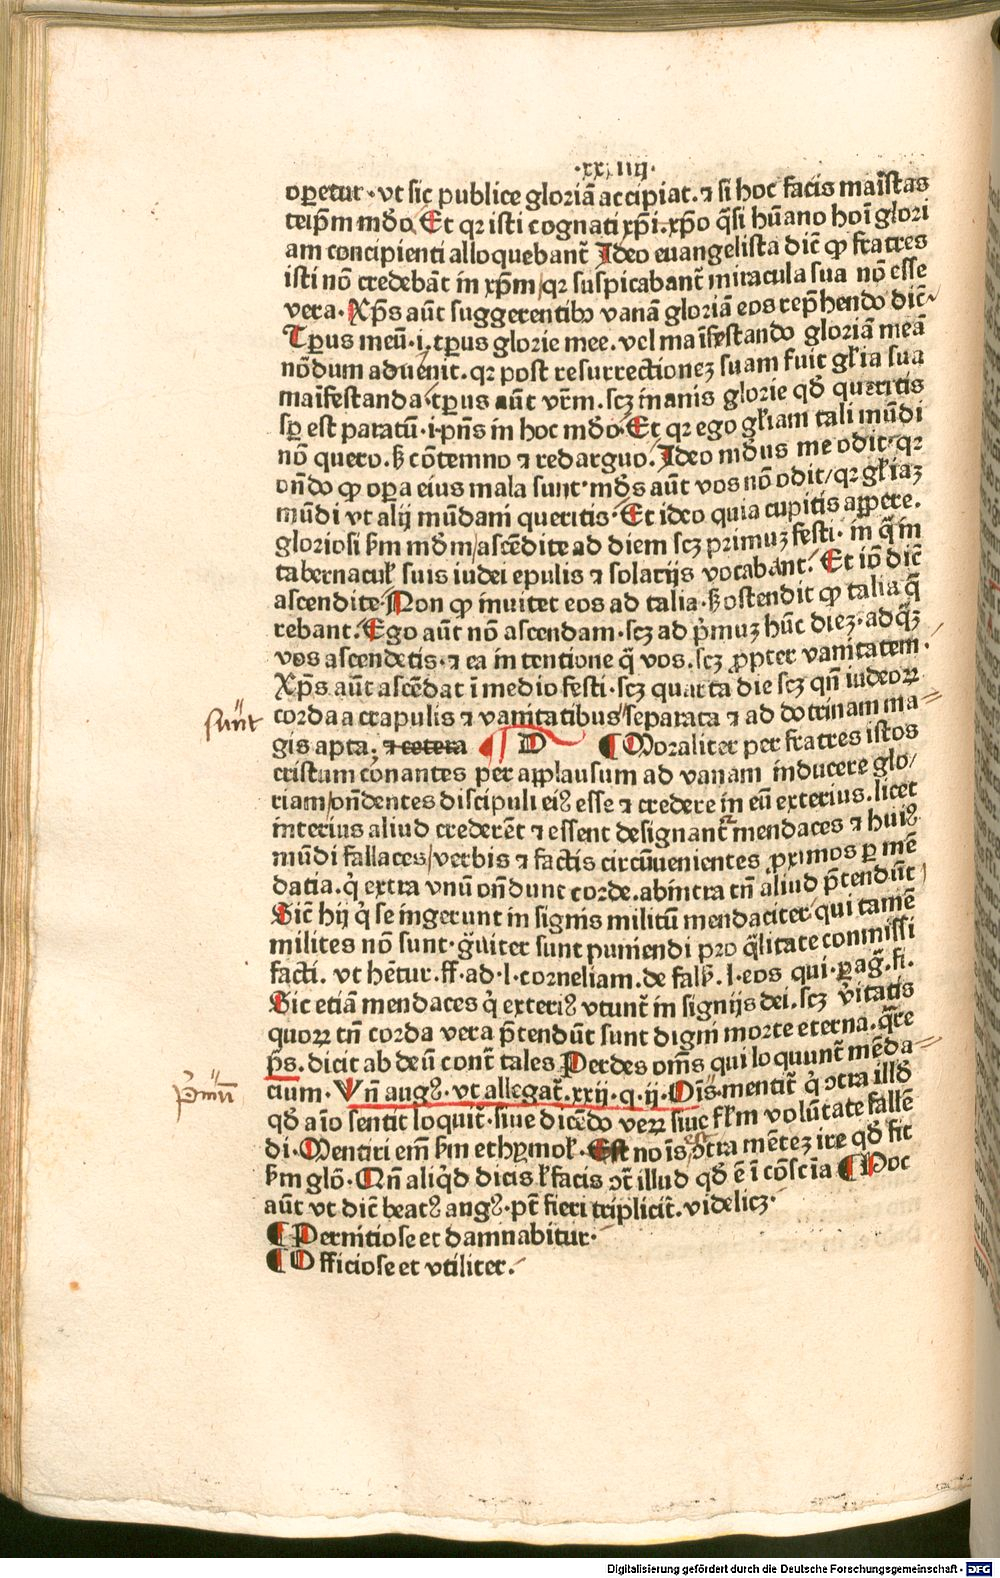 ·xxiiij·
operetur·vt sic publice gloriā accipiat.⁊ si hoc facis maīstas
teipm̄ mūdo Et qꝛ isti cognati xp̄i·xp̄o q̄si hūano hoī glori
am concipienti alloquebant̄ Ideo euangelista dic̄ ꝙ fratres
isti nō credebāt in xp̄m/qꝛ suspicabant̄ miracula sua nō esse
vera·Xp̄s aūt suggerentibꝰ vanā gloriā eos rep̄hendo dic̄
Tp̄us meū·i.tp̄us glorie mee.vel maīfestando gloriā meā
nōdum aduenit.qꝛ post resurrectionez suam fuit gl̄ia sua
maīfestanda·tp̄us aūt vr̄m.scꝫ inanis glorie qd̄ queritis
sꝑ est paratū·i·pn̄s in hoc mūdo·Et qꝛ ego gl̄iam tali mūdi
nō quero.ꝣ cōtemno ⁊ redarguo.Ideo mūdus me odit·qꝛ
on̄do ꝙ opera eius mala sunt·mūdꝰ aūt vos nō odit/qꝛ gl̄iaꝫ
mūdi vt alij mūdani queritis·Et ideo quia cupitis apꝑere.
gloriosi ẜm mūdm/ascēdite ad diem scꝫ primuꝫ festi· in q̄ in
tabernacul̄ suis iudei epulis ⁊ solatijs vocabant.Et iō dic̄
ascendite·Non ꝙ inuitet eos ad talia·ꝣ ostendit ꝙ talia q̄
rebant.Ego aūt nō ascendam·scꝫ ad p̄muꝫ hūc dieꝫ·ad q̄ꝫ
vos ascendetis·⁊ ea intentione q̄ vos.scꝫ ꝓpter vanitatem·
Xp̄s aūt ascēdat ī medio festi·scꝫ quarta die scꝫ qn̄ iudeoꝝ
sunt
corda a crapulis ⁊ vanitatibus separata ⁊ ad doctrinam ma
gis apta. ⁊ cetera D ¶Moraliter per fratres istos
cristum cōnantes per applausum ad vanam inducere glo/
riam/on̄dentes discipuli eiꝰ esse ⁊ credere in eū exterius.licet
interius aliud crederēt ⁊ essent designant̄ mendaces ⁊ huiꝰ
mūdi fallaces/verbis ⁊ factis circūuenientes ꝓximos ꝑ mē
datia.q̄ extra vnū on̄dunt corde.abintra tn̄ aliud p̄tendūt
Sic̄ hij q̄ se ingerunt in signis militū mendaciter qui tamē
milites nō sunt·gūiter sunt puniendi pro q̄litate commissi
facti. vt hētur.ff·ad·l·corneliam.de fals̄.l·eos qui·ꝑaḡ.fi.
Sic etiā mendaces q̄ exteriꝰ vtunt̄ in signijs dei.scꝫ v̄itatis
quoꝝ tn̄ corda vera p̄tendūt sunt digni morte eterna.q̄re
p̄s.dicit ab deū cont̄ tales Perdes om̄s qui loquunt̄ mēda
p̄mū
cium·Vn̄ augꝰ.vt allegat̄.xxij·q·ij·Oīs·mentit̄ q̄ ↄtra illd̄
qd̄ aīo sentit loquit̄·siue dicēdo veꝝ siue fl̄m volūtate fallē
di·Mentiri em̄ ẜm ethymol̄·Est noīs ↄtra mētez ire qd̄ fit
est
ẜm glō·Qn̄ aliq̄d dicis l̄ facis ↄt̄ illud qd̄ ē ī cōsc̄ia ¶Hoc
aūt vt dic̄ beatꝰ augꝰ·pt̄ fieri triplicit̄.videlicꝫ·
¶Pernitiose et damnabitur·
¶Officiose et vtiliter.
Digitalisierung gefördert durch die Deutsche Forschungsgemeinschaft - DFG